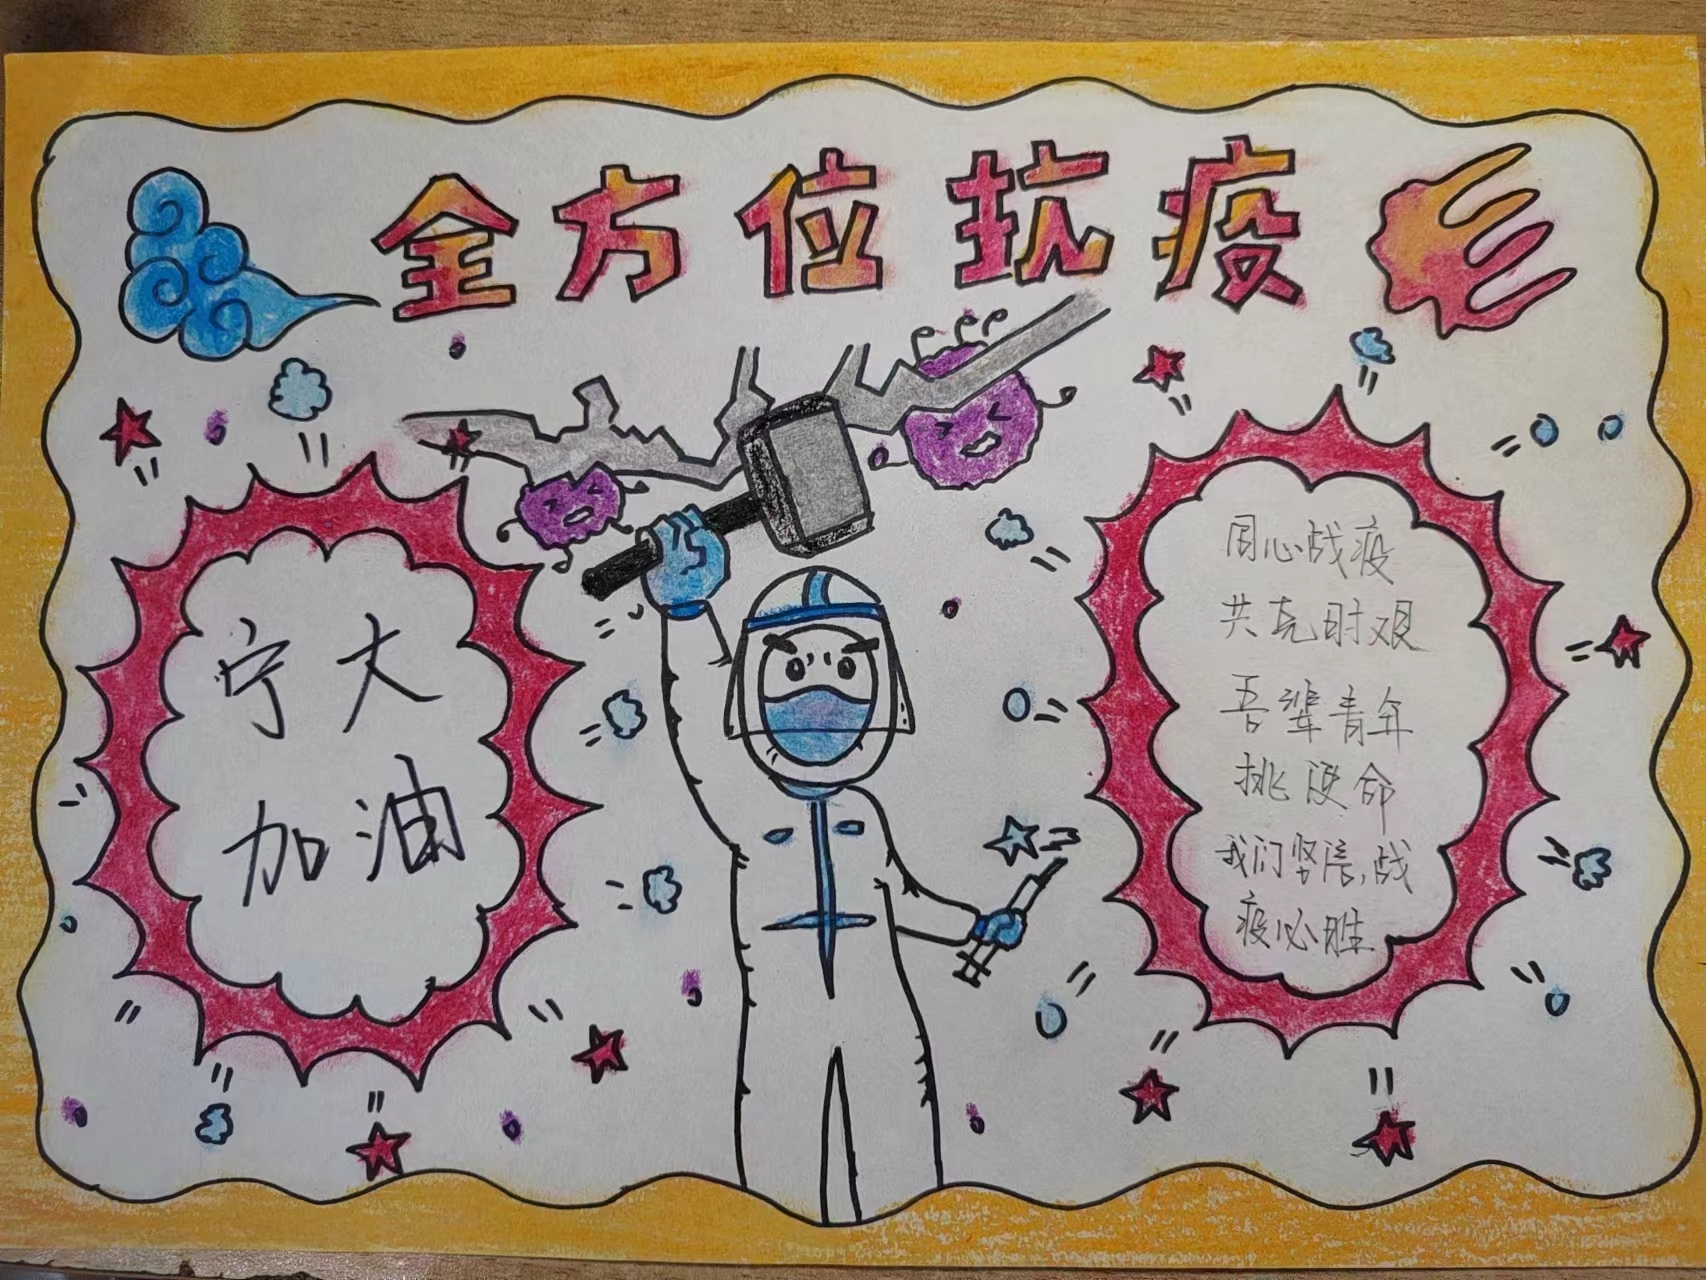 全方位抗疫
宁大
加油
同心战疫
共克时艰
吾辈青年
挑使命
我们坚信,战
疫必胜